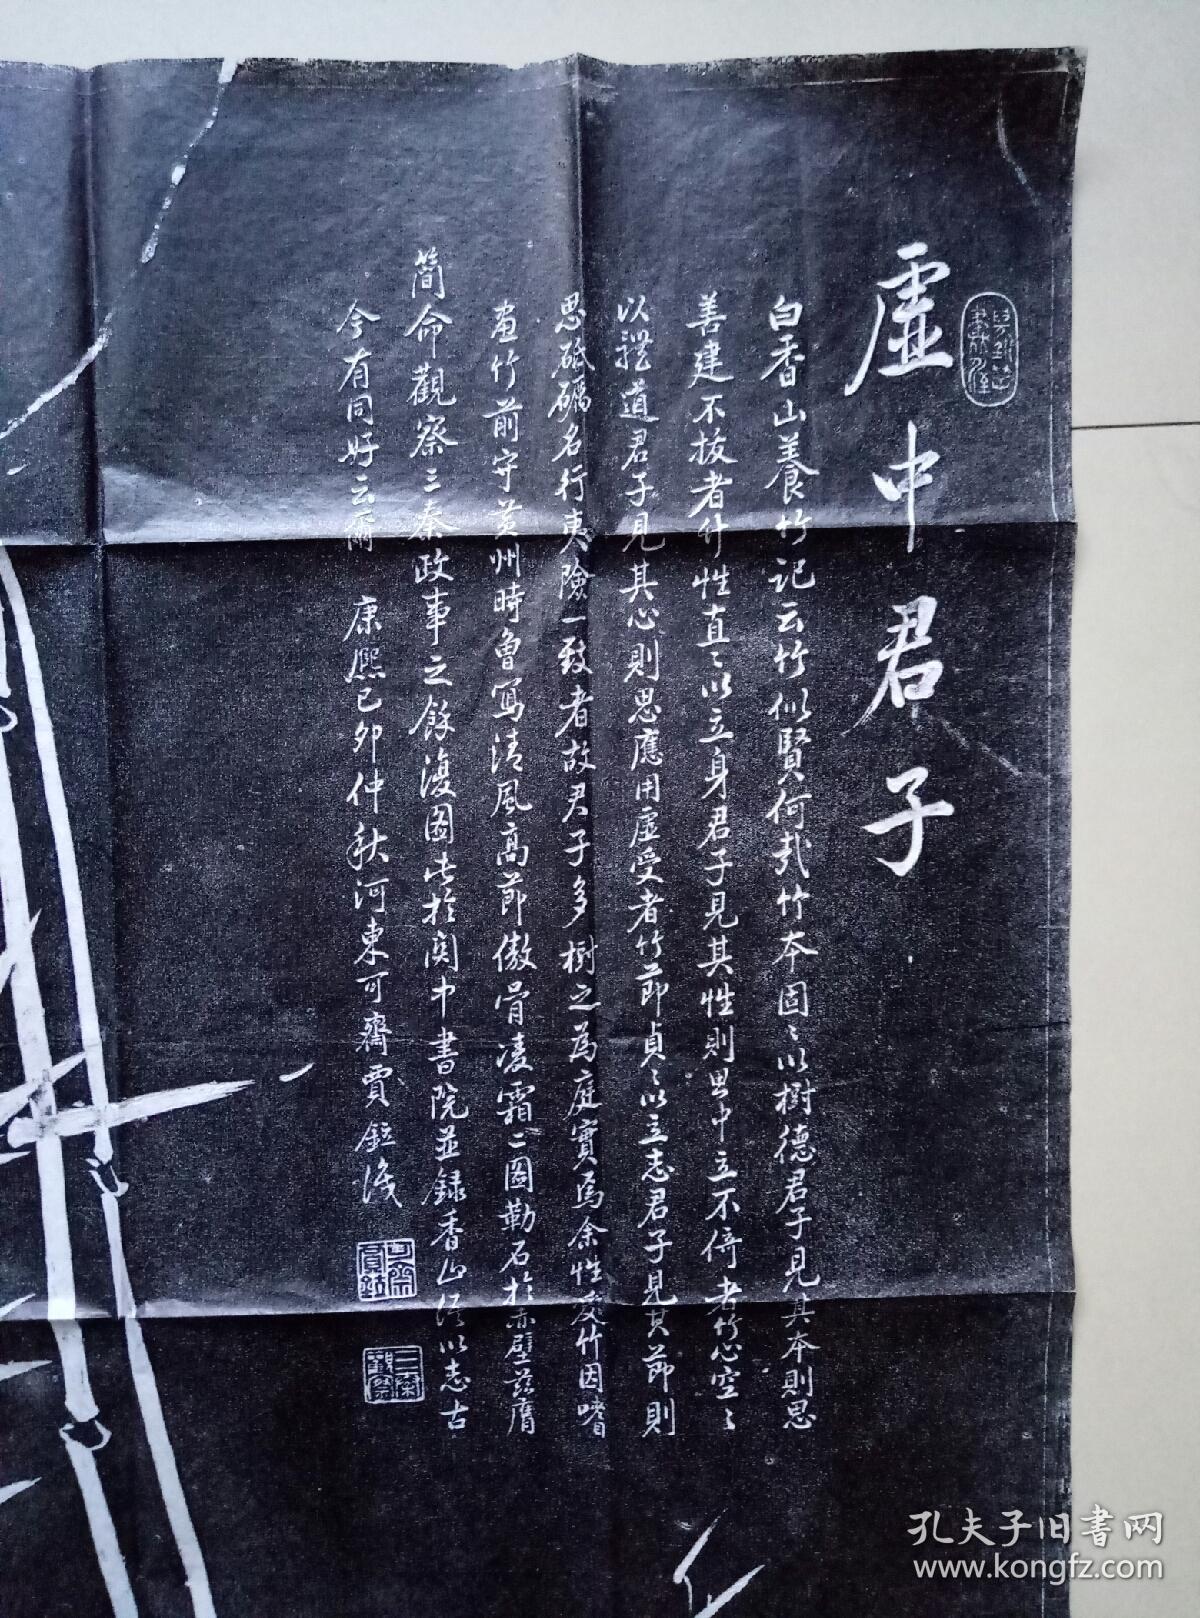 虛中君子
白香山養竹記云竹似賢何哉竹本固〻以樹德君子見其本則思
善建不拔者竹性直〻以立身君子見其性則思中立不倚者竹心空〻
以體道君子見其心則思應用虛受者竹節貞〻以立志君子見其節則
思砥礪名行夷險一致者故君子多樹之為庭實焉余性愛竹因嗜
畫竹前守黃州時曾寫清風高節傲骨凌霜二圖勒石於赤壁茲膺
簡命觀察三秦政事之餘復圖此於關中書院並錄香山語以志古
今有同好云爾 康熙己卯仲秋河東可齋賈鉝識
孔夫子旧書网
www.kongfz.com